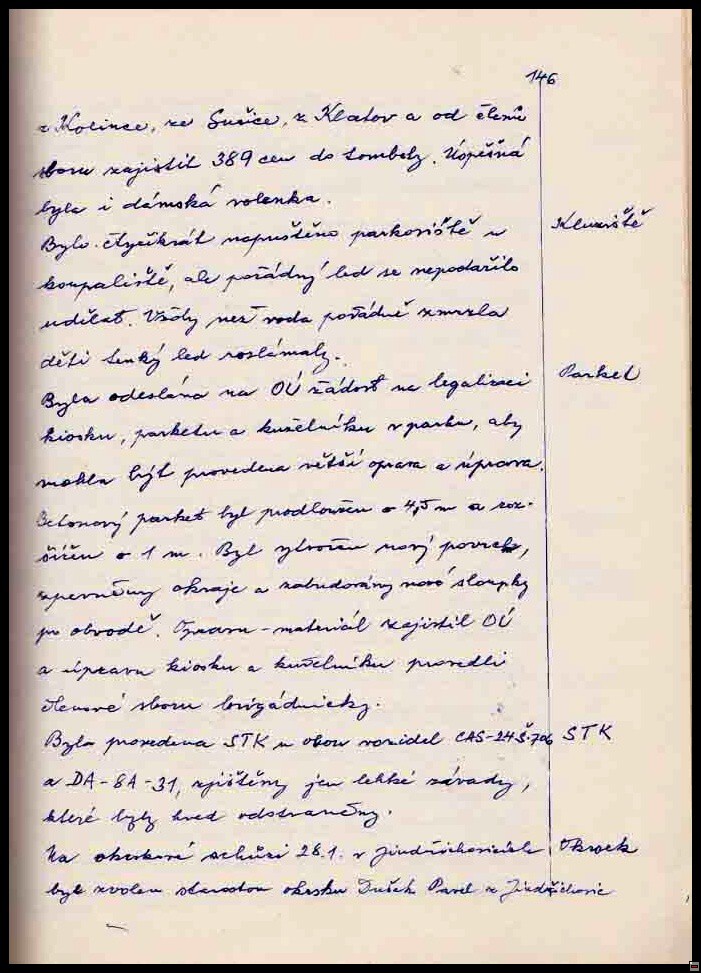 146
z Kolince, ze Sušice, z Klatov a od členů
sboru zajistit 389 cen do tomboly. Úspěšná
byla i dámská volenka.
Bylo čtyřikrát napuštěno parkoviště u Kluziště
koupaliště, ale pořádný led se nepodařilo
udělat. Vždy než voda pořádně zmrzla
děti tenký led rozlámaly.
Byla odeslána na OÚ žádost na legalizaci Parket
kiosku, parketu a kuželníku v parku, aby
mohla být provedena větší oprava a úprava.
Betonový parket byl prodloužen o 4,5 m a roz-
šířen o 1 m. Byl vytvořen nový povrch,
zpevněny okraje a zabudovány nové sloupky
po obvodě. Opravu - materiál zajistil OÚ
a úpravu kiosku a kuželníku provedli
členové sboru brigádnicky.
Byla provedena STK u obou vozidel CAS-24Š-706 STK
a DA-8A-31, zjištěny jen lehké závady,
které byly hned odstraněny.
Na okrskové schůzi 28.1. v Jindřichovicích Okrsek
byl zvolen starostou okrsku Dušek Pavel z Jindřichovic